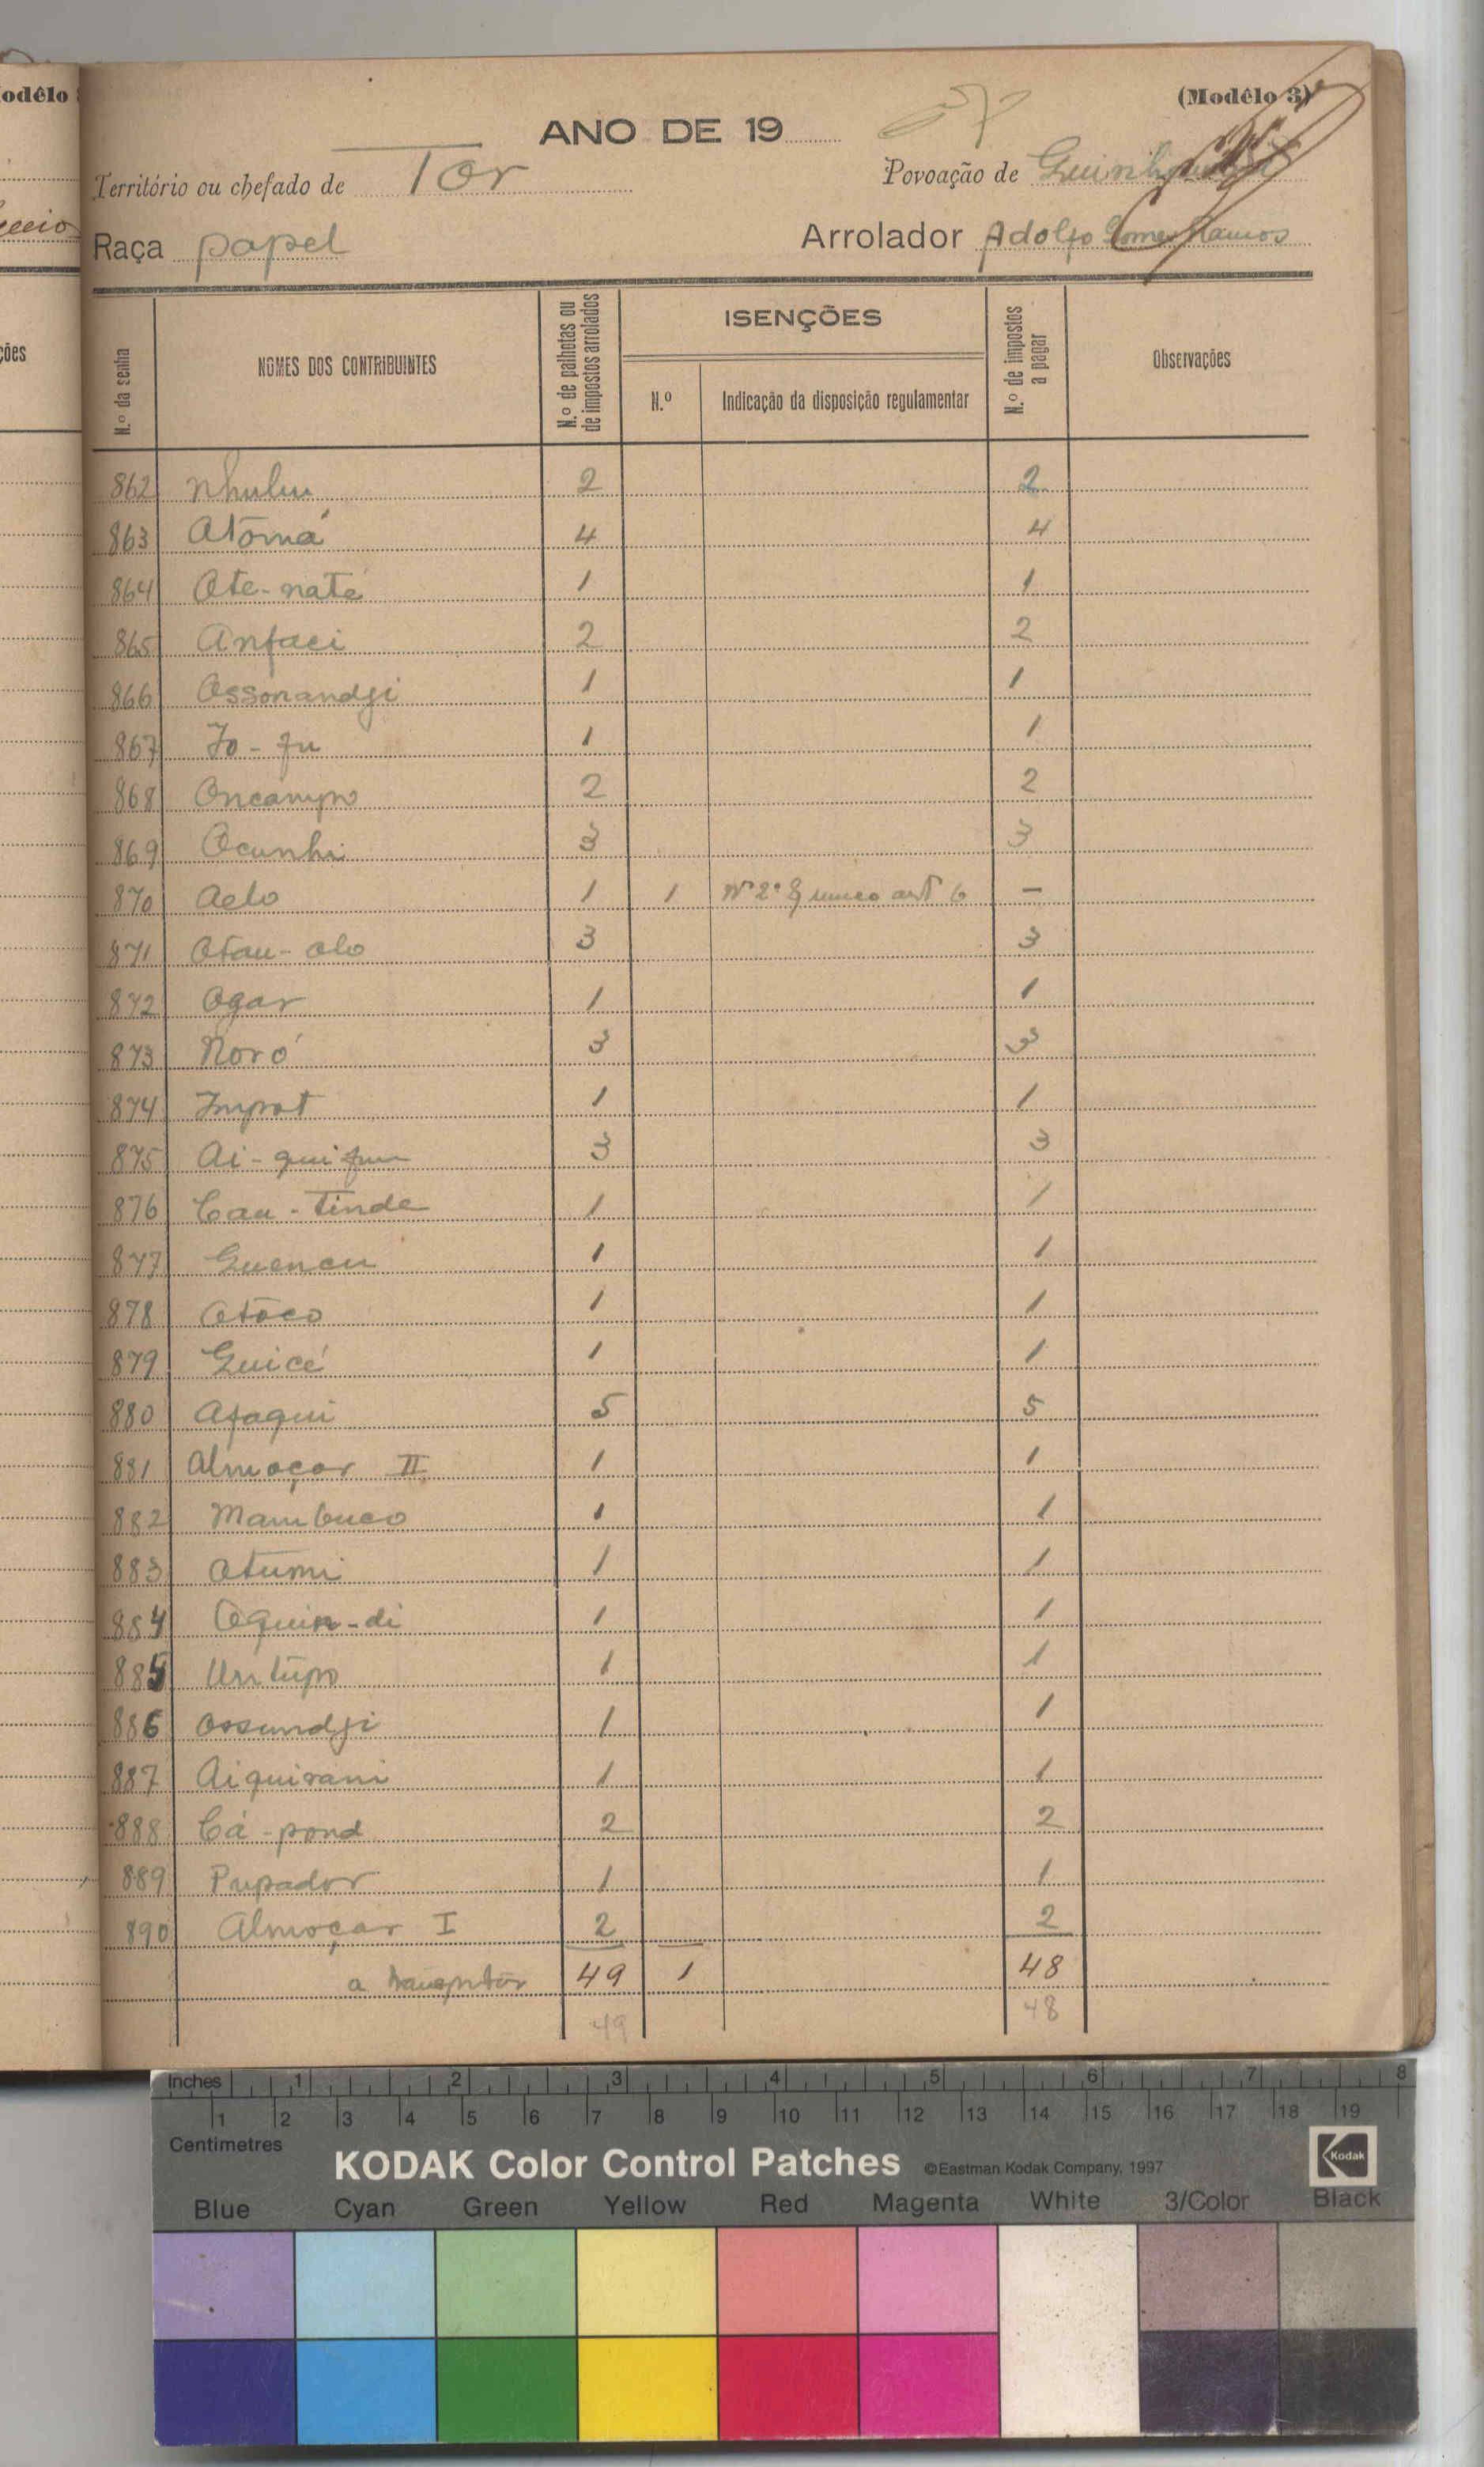 odêlo
(Modêlo 3)
ANO DE 19
57
Território ou chefado de Tor
Povoação de
Raça papel
Arrolador Adolfo Gomes Ramos
ções
N.º da senha
NOMES DOS CONTRIBUINTES
N.º de palhotas ou de impostos arrolados
ISENÇÕES
N.º
Indicação da disposição regulamentar
N.º de impostos a pagar
Observações
862 Nhului 2 2
863 Atōmá 4 4
864 Ote-naté 1 1
865 Anfaci 2 2
866 Ossonandji 1 1
867 Jo-fu 1 1
868 Oncampo 2 2
869 Ocunhi 3 3
870 Aelo 1 1 Nº 2º § unico artº 6 —
871 Ofau-olo 3 3
872 Ogar 1 1
873 Noró 3 3
874 Impot 1 1
875 Ai-quifun 3 3
876 Cau-Tinde 1 1
877 Guencu 1 1
878 Otōco 1 1
879 Guicé 1 1
880 Afaqui 5 5
881 Almoçar II 1 1
882 Mambuco 1 1
883 Otumi 1 1
884 Oquin-di 1 1
885 Untūpo 1 1
886 Ossundji 1 1
887 Aiquirani 1 1
888 Cá-pond 2 2
889 Pupador 1 1
890 Almoçar I 2 2
a transportar 49 1 48
49 48
Inches 1 2 3 4 5 6 7 8
1 2 3 4 5 6 7 8 9 10 11 12 13 14 15 16 17 18 19
Centimetres
KODAK Color Control Patches ©Eastman Kodak Company, 1997 Kodak
Blue Cyan Green Yellow Red Magenta White 3/Color Black